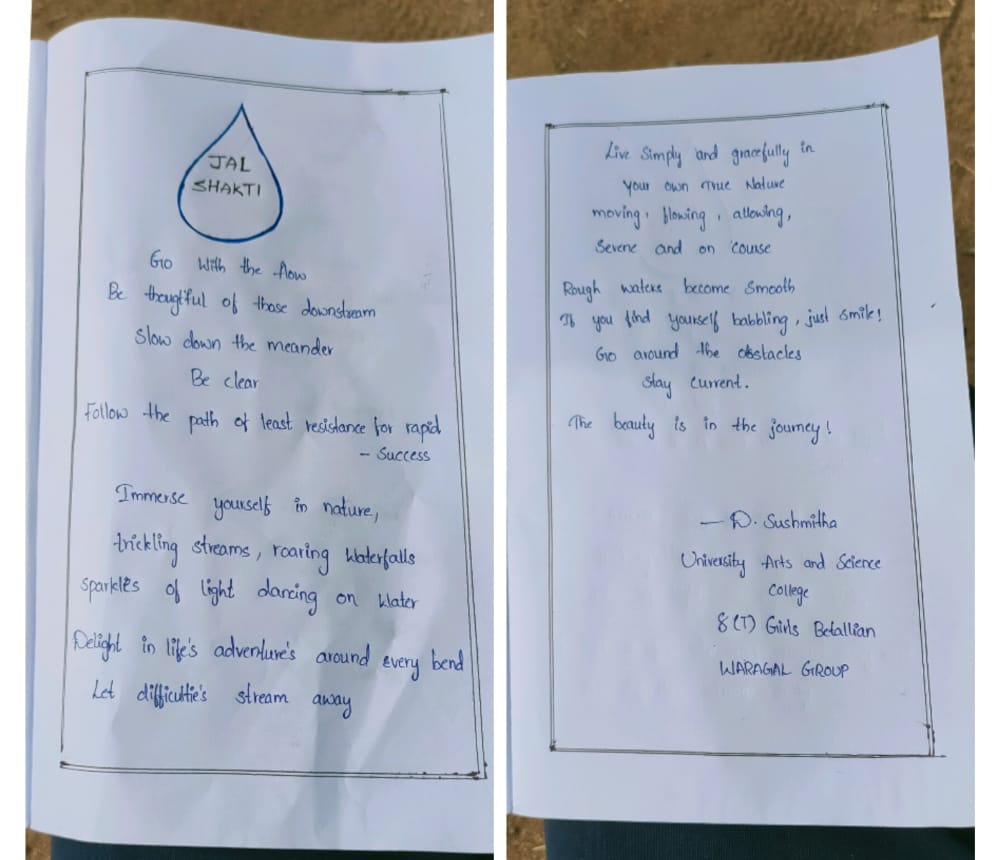 JAL
SHAKTI
Go With the flow
Be thougtful of those downstream
Slow down the meander
Be clear
Follow the path of least resistance for rapid
- Success
Immerse yourself in nature,
trickling streams, roaring waterfalls
sparkles of light dancing on water
Delight in life's adventure's around every bend
Let difficultie's stream away
Live Simply and gracefully in
Your own True Nature
moving, flowing, allowing,
Serene and on course
Rough waters become Smooth
If you find yourself babbling, just smile!
Go around the obstacles
Stay Current.
The beauty is in the journey!
- D. Sushmitha
University Arts and Science
College
8(T) Girls Betallian
WARAGAL GROUP